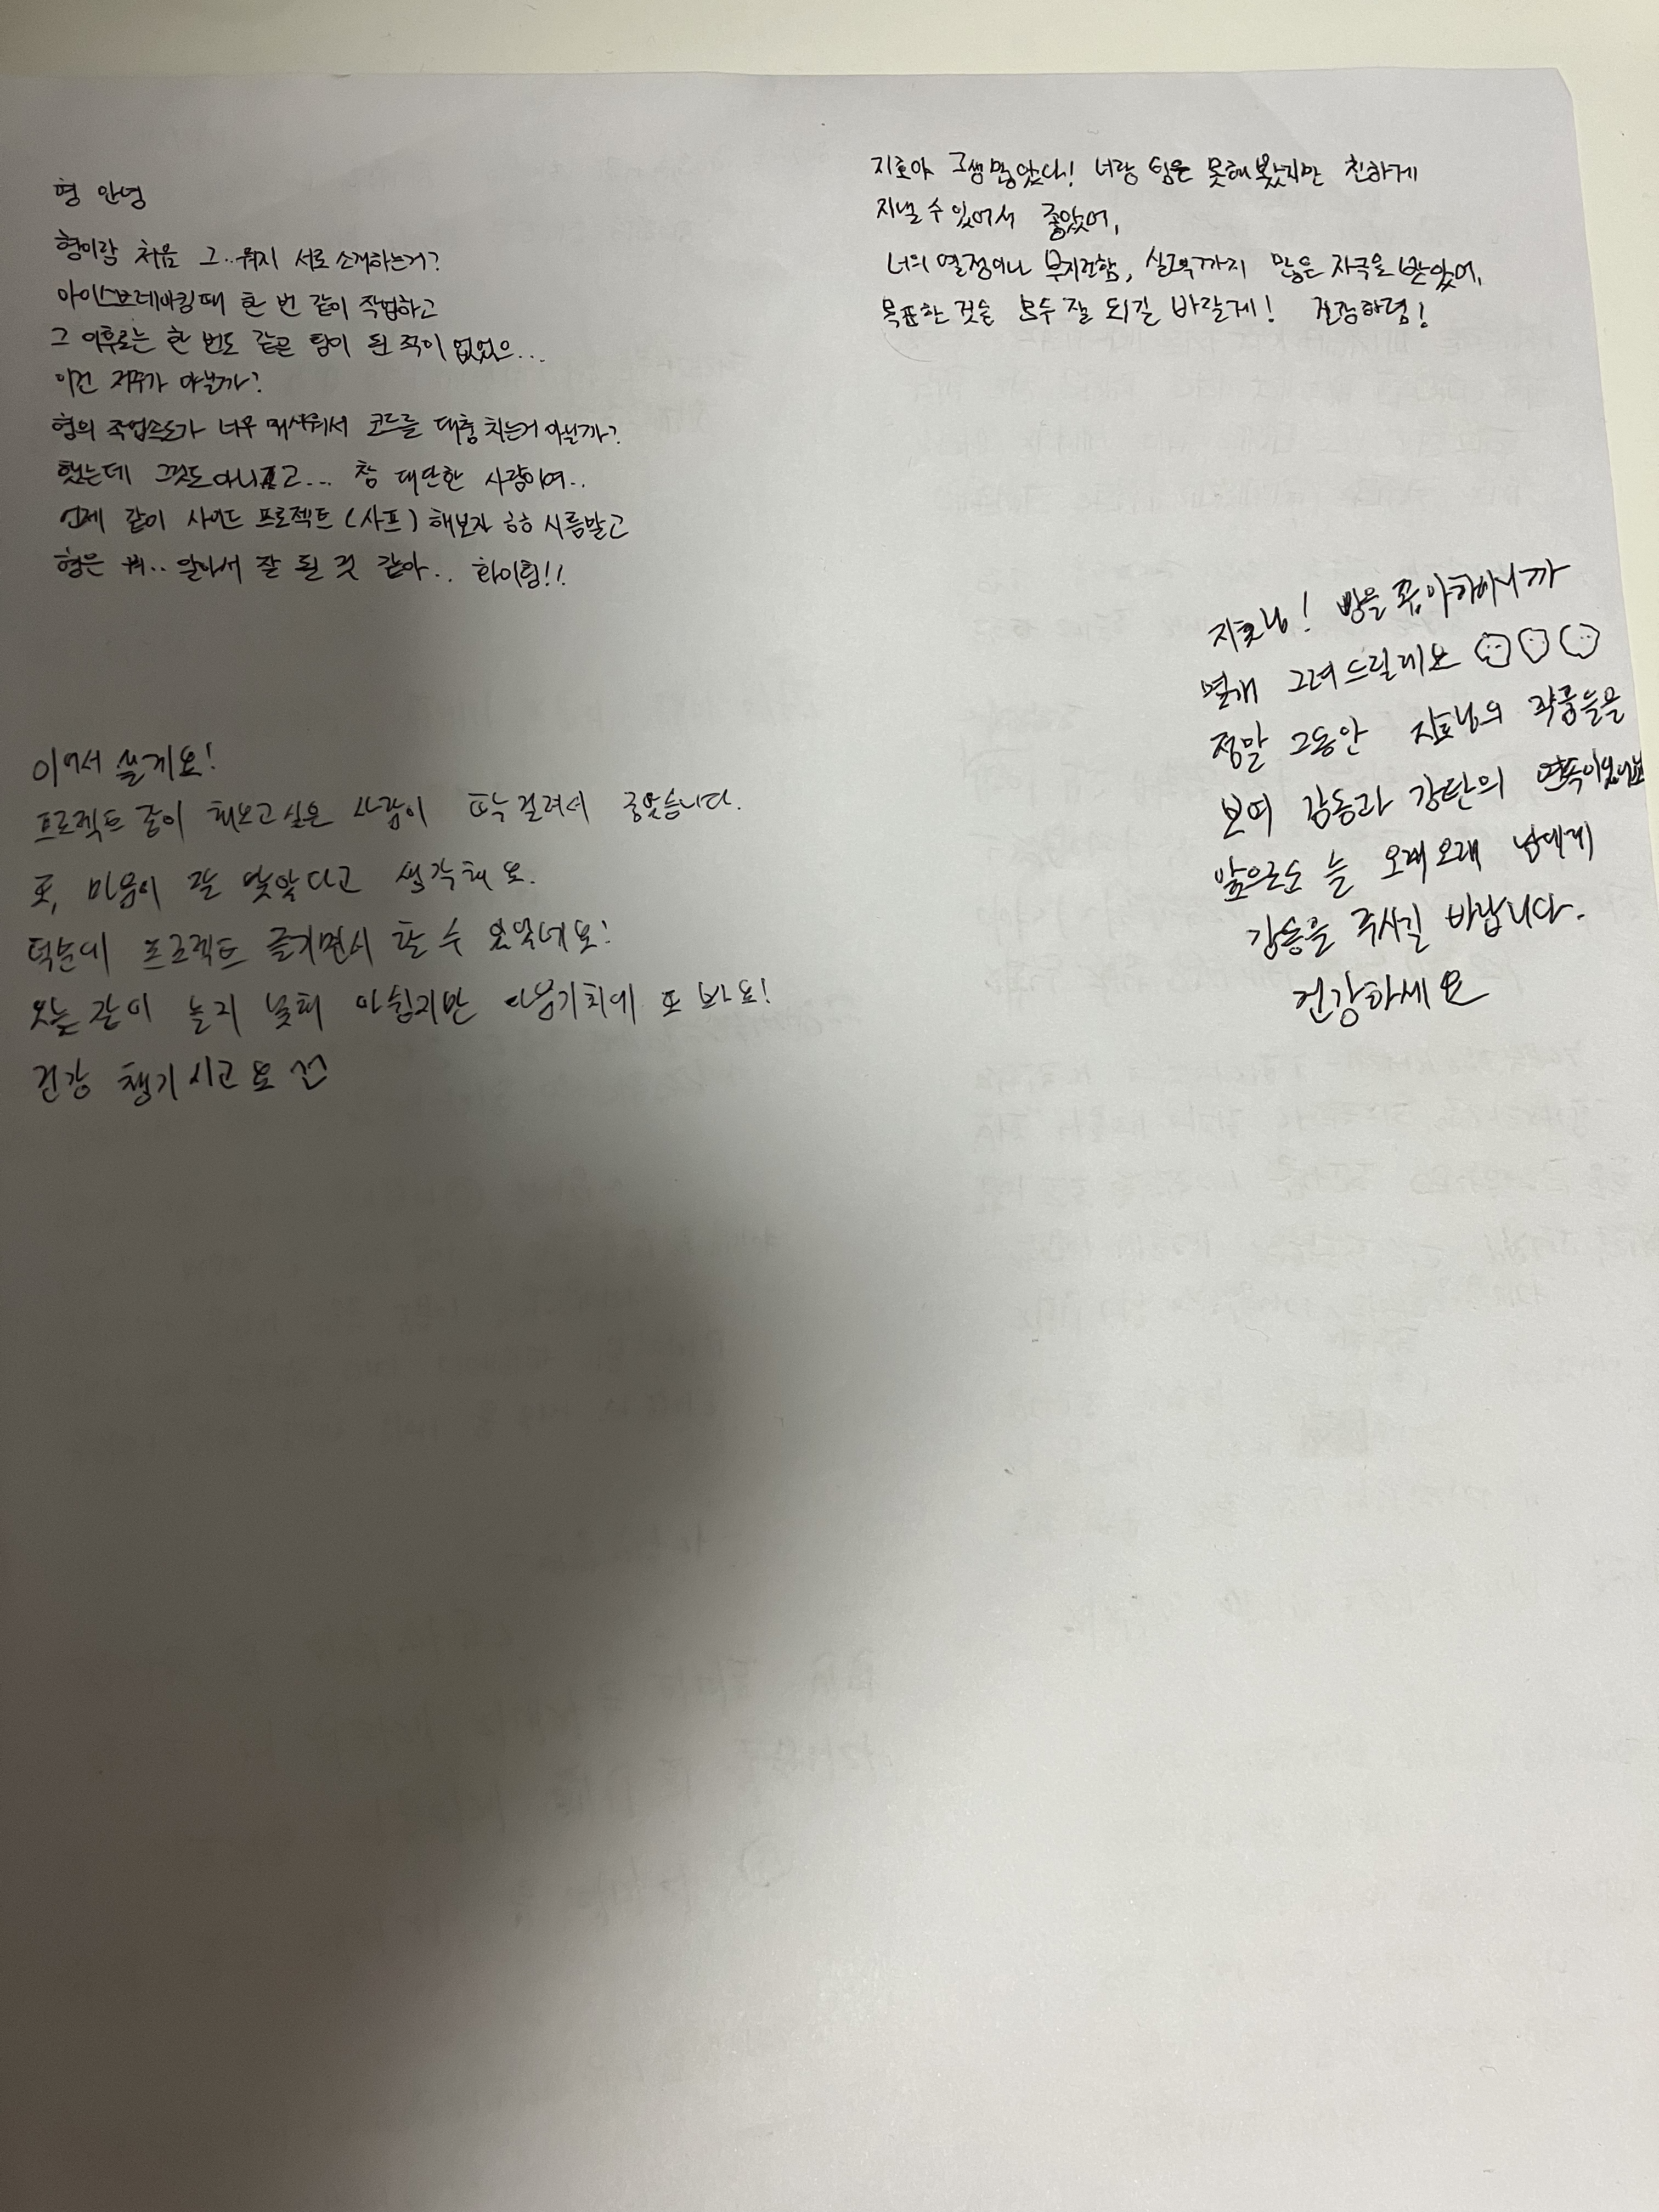 형 안녕
형이랑 처음 그..뭐지 서로 소개하는거?
아이스브레이킹때 한 번 같이 작업하고
그 이후로는 한 번도 같은 팀이 된 적이 없었으...
이건 저주가 아닐까?
형의 작업속도가 너무 매서워서 코드를 대충 치는거 아닐까?
했는데 그것도 아니고... 참 대단한 사람이여..
언제 같이 사이드 프로젝트 (사프) 해보자 ㅎㅎ 시름말고
형은 뭐.. 알아서 잘 될 것 같아.. 화이팅!!
지호야 고생 많았다! 너랑 팀은 못해봤지만 친하게
지낼 수 있어서 좋았어,
너의 열정이나 부지런함, 실력까지 많은 자극을 받았어,
목표한 것을 모두 잘 되길 바랄게! 건강하렴!
지호님! 빵을 좋아하시니까
몇개 그려드릴게요
정말 그동안 지호님의 작품들을
보며 감동과 감탄의 연속이었어요
앞으로도 늘 오래오래 남에게
감동을 주시길 바랍니다.
건강하세요
이어서 쓸게요!
프로젝트 같이 해보고싶은 사람이 딱 걸려서 좋았습니다.
또, 마음이 잘 맞았다고 생각해요.
덕분에 프로젝트 즐기면서 할 수 있었네요!
오늘 같이 놀지 못해 아쉽지만 다음기회에 또 봐요!
건강 챙기시고요